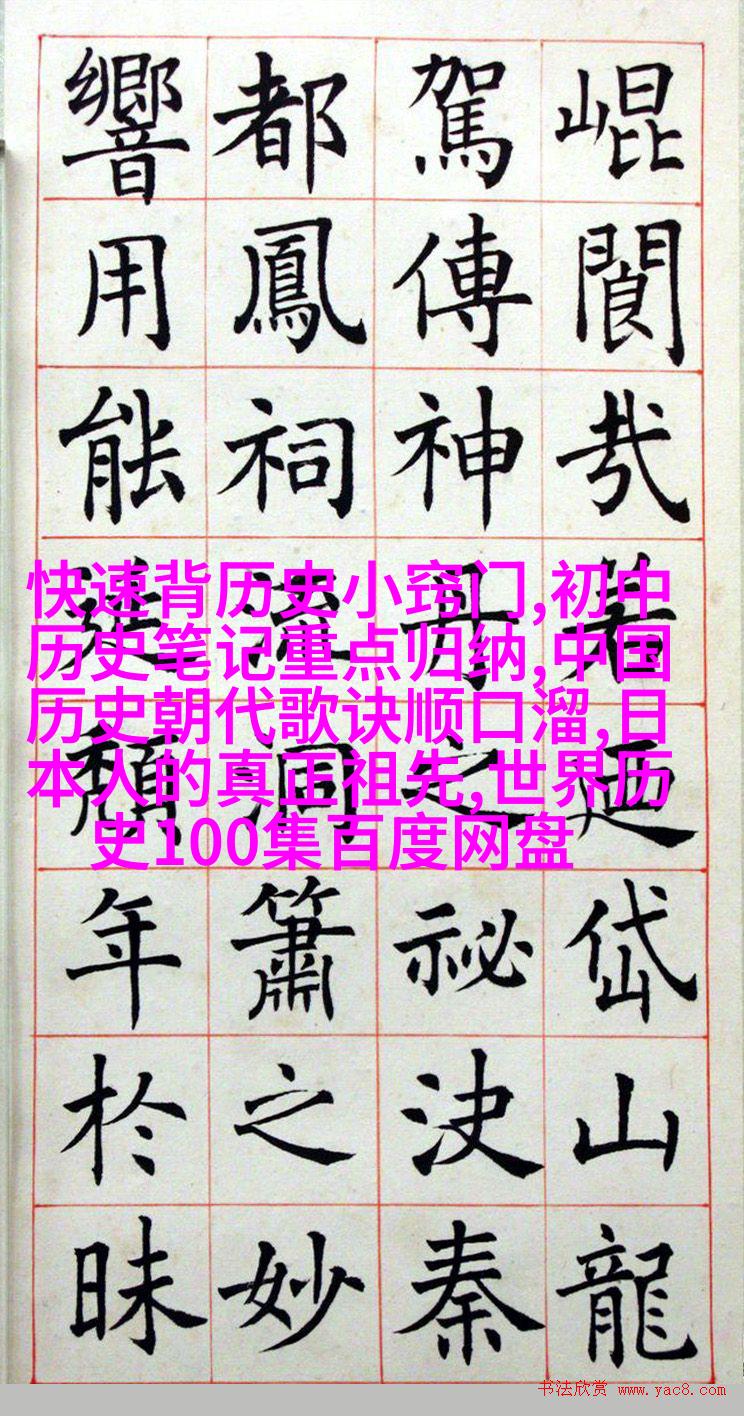 崐閬哉若廼岱山龍
駕傳神丹之祕決秦
都鳳祠流洞簫之妙
響用能延頹年於昧
快速背历史小窍门,初中
历史笔记重点归纳,中国
历史朝代歌诀顺口溜,日
本人的真正祖先,世界历
史100集百度网盘
书法欣赏 www.yac8.com